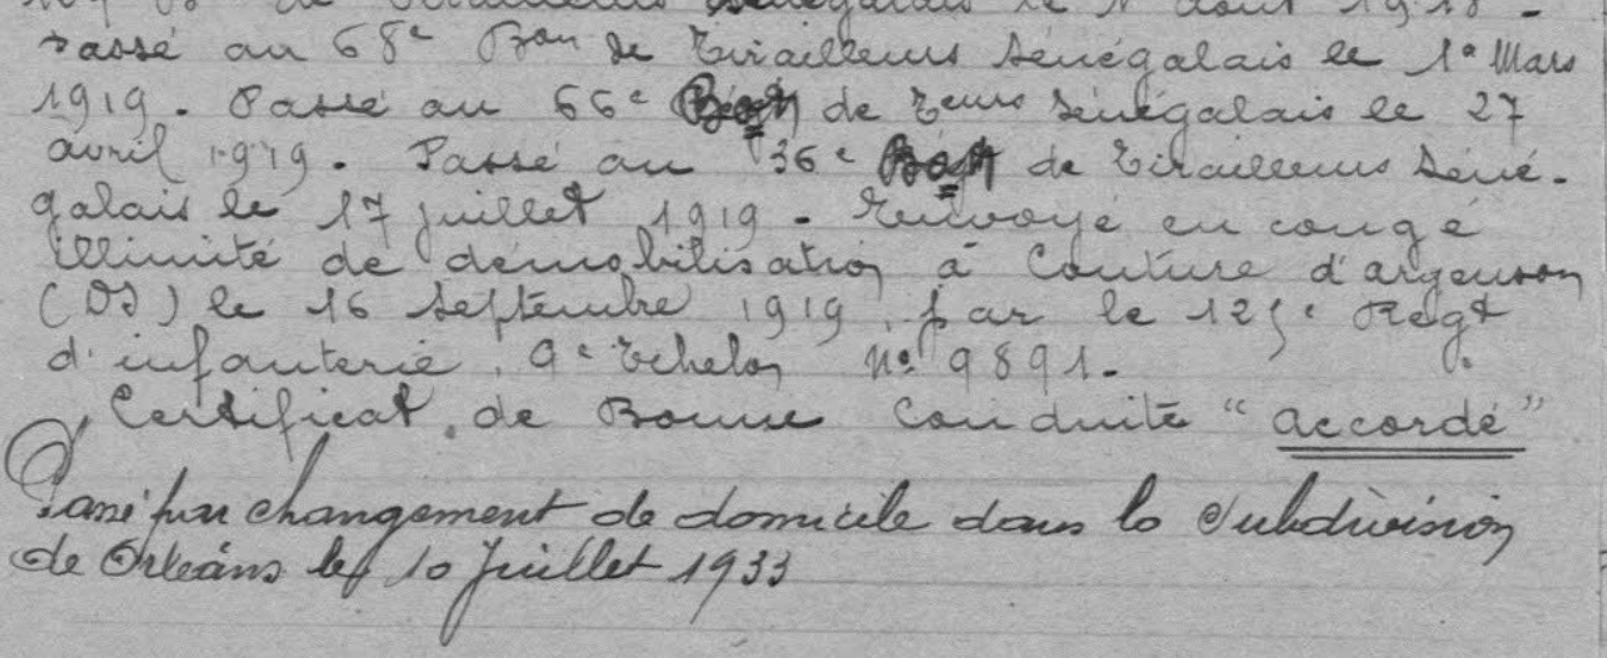 de Tirailleurs Sénégalais le 1 Août 1918 -
Passé au 68e Bon de Tirailleurs Sénégalais le 1o Mars
1919. Passé au 66e de Teurs Sénégalais le 27
avril 1919. Passé au 36e de Tirailleurs Séné-
galais le 17 juillet 1919 - Renvoyé en congé
illimité de démobilisation à Couture d'argenson
(DS) le 16 Septembre 1919, par le 125e Regt
d'infanterie, 9e Echelon No 9891-
Certificat de Bonne Conduite "accordé"
Passé par changement de domicile dans la Subdivision
de Orléans le 10 Juillet 1933